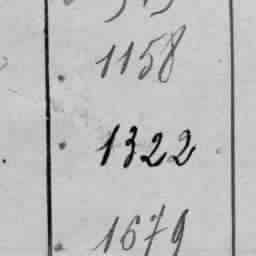 1158
1322
1679